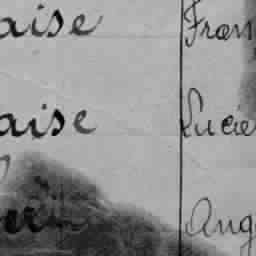 aise Fran
aise Lucie
Ang